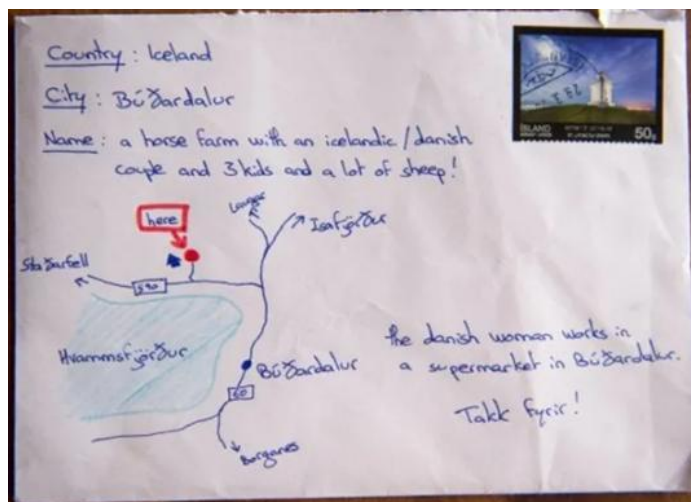 Country : Iceland
City : Búðardalur
Name : a horse farm with an icelandic / danish
couple and 3 kids and a lot of sheep!
ÍSLAND
50g
here
Isafjörður
Staðarfell
590
Hvammsfjörður
Búðardalur
60
Borganes
the danish woman works in
a supermarket in Búðardalur.
Takk fyrir!